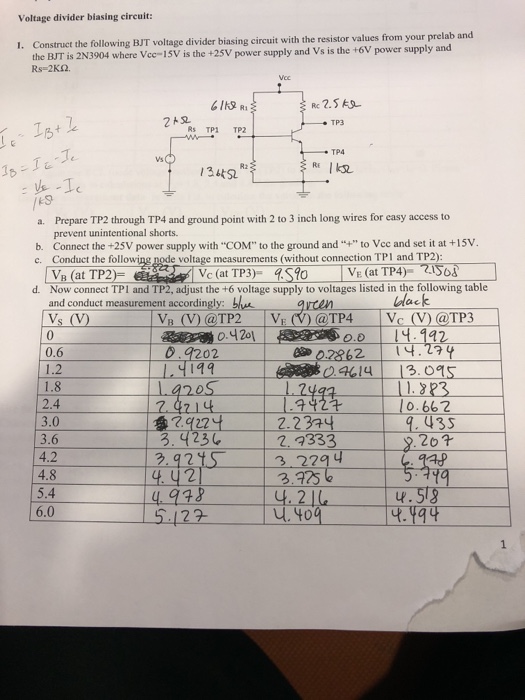 Voltage divider biasing circuit:
1. Construct the following BJT voltage divider biasing circuit with the resistor values from your prelab and
the BJT is 2N3904 where Vcc=15V is the +25V power supply and Vs is the +6V power supply and
Rs=2KΩ.
Vcc
61kΩ R1
Rc 2.5kΩ
2kΩ
Rs TP1 TP2
TP3
TP4
Vs
13.6kΩ R2
RE 1kΩ
IB + Ic
IB = IE - Ic
= VE - Ic
1kΩ
a. Prepare TP2 through TP4 and ground point with 2 to 3 inch long wires for easy access to
prevent unintentional shorts.
b. Connect the +25V power supply with "COM" to the ground and "+" to Vcc and set it at +15V.
c. Conduct the following node voltage measurements (without connection TP1 and TP2):
VB (at TP2)= 2.8225 VC (at TP3)= 9.590 VE (at TP4)= 2.1568
d. Now connect TP1 and TP2, adjust the +6 voltage supply to voltages listed in the following table
and conduct measurement accordingly: blue green black
VS (V) VB (V) @TP2 VE (V) @TP4 VC (V) @TP3
0 0.4201 0.0 14.992
0.6 0.9202 0.2862 14.274
1.2 1.4199 0.7614 13.095
1.8 1.9205 1.2497 11.883
2.4 2.4214 1.7427 10.662
3.0 2.9224 2.2374 9.435
3.6 3.4236 2.7333 8.207
4.2 3.9245 3.2294 6.978
4.8 4.421 3.7256 5.749
5.4 4.978 4.216 4.518
6.0 5.127 4.409 4.494
1